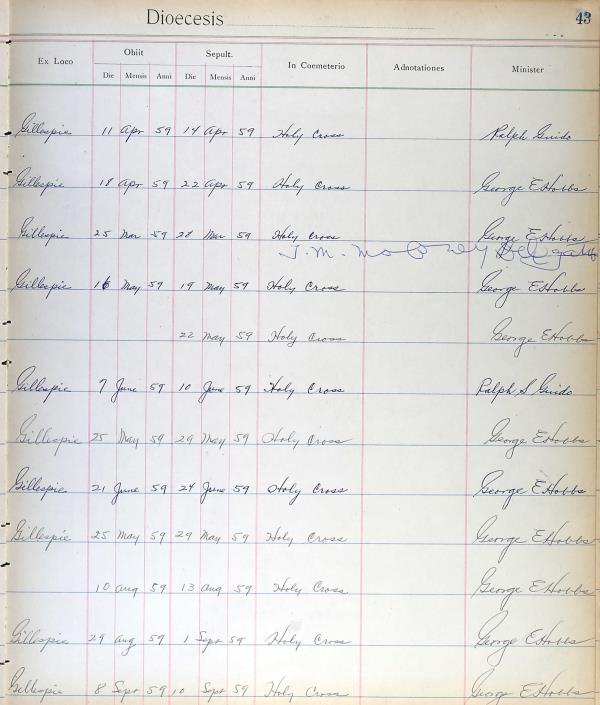 Dioecesis 43
Ex Loco Obiit Sepult. In Coemeterio Adnotationes Minister
Die Mensis Anni Die Mensis Anni
Gillespie 11 Apr 59 14 Apr 59 Holy Cross Ralph Guido
Gillespie 18 Apr 59 22 Apr 59 Holy Cross George E Hobbs
Gillespie 25 Mar 59 28 Mar 59 Holy Cross George E Hobbs
J. M. Maloney Delegate
Gillespie 16 May 59 19 May 59 Holy Cross George E Hobbs
22 May 59 Holy Cross George E Hobbs
Gillespie 7 June 59 10 June 59 Holy Cross Ralph S Guido
Gillespie 25 May 59 29 May 59 Holy Cross George E Hobbs
Gillespie 21 June 59 24 June 59 Holy Cross George E Hobbs
Gillespie 25 May 59 29 May 59 Holy Cross George E Hobbs
10 aug 59 13 aug 59 Holy Cross George E Hobbs
Gillespie 29 aug 59 1 Sept 59 Holy Cross George E Hobbs
Gillespie 8 Sept 59 10 Sept 59 Holy Cross George E Hobbs